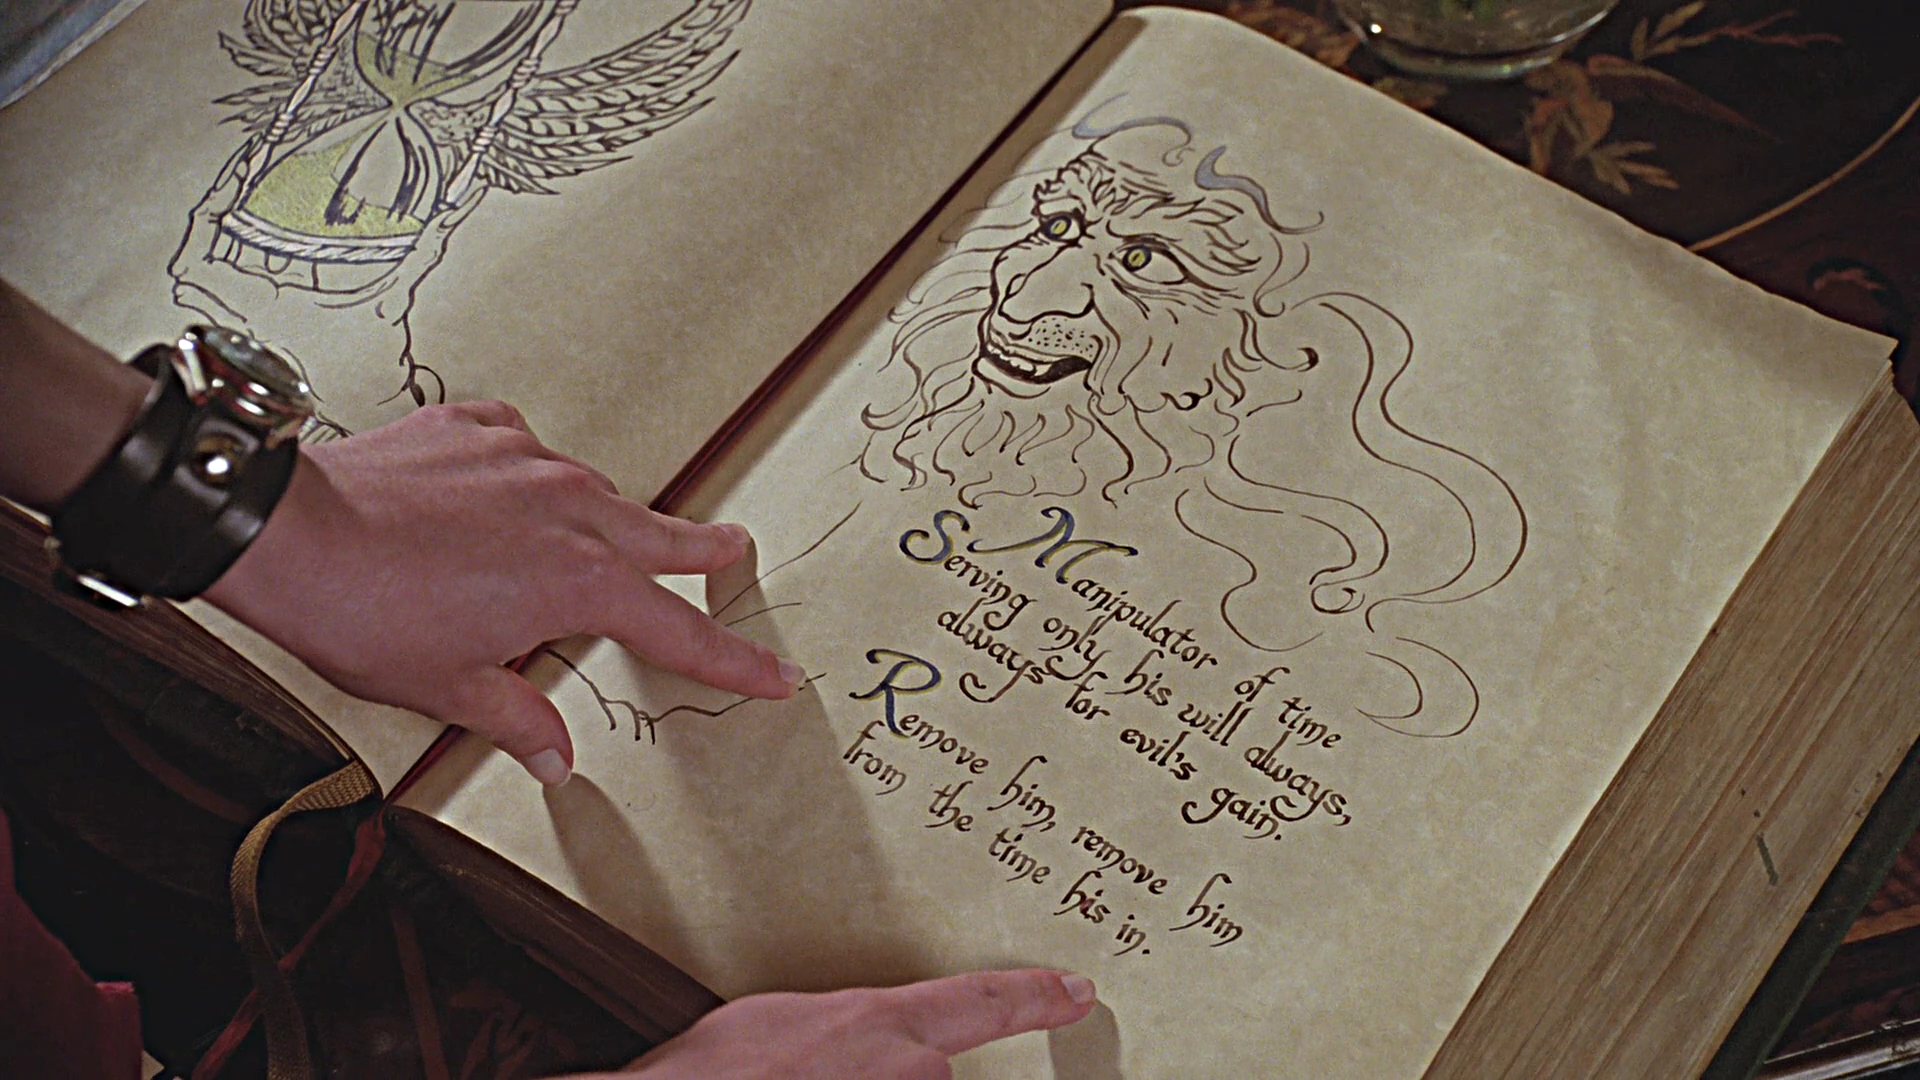 Manipulator of time
Serving only his will always,
always for evil's gain.
Remove him, remove him
from the time his in.